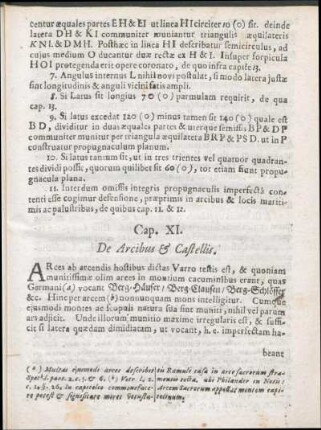 centur æquales partes EH & EI ut linea HI circiter 10 (0) sit. deinde
latera DH & KI communiter muniantur triangulis æquilateris
KNI. & DMH. Posthæc in linea HI describatur semicirculus, ad
cujus medium O ducantur duæ rectæ ex H & I. Insuper forpicula
HOI protegenda erit opere coronato, de quo infra capite 13.
7. Angulus internus L nihil novi postulat, si modo latera justæ
sint longitudinis & anguli vicini satis ampli.
8. Si Latus sit longius 70 (0) parmulam requirit, de qua
cap. 13.
9. Si latus excedat 120 (0) minus tamen sit 140 (0) quale est
BD, dividitur in duas æquales partes & uterque semissis BP & DP
communiter munitur per triangula æquilatera BRP & PSD. ut in P
construatur propugnaculum planum.
10. Si latus tantum sit, ut in tres vel quatuor quadrantes
dividi possit, quorum quilibet sit 60 (0), tot etiam fiunt propugnacula
plana.
11. Interdum omissis integris propugnaculis imperfectâ contenti
esse cogimur defensione, præprimis in arcibus & locis montimis
ac palustribus, de quibus cap. 11. & 12.
Cap. XI.
De Arcibus & Castellis.
ARces ab arcendis hostibus dictas Varro testis est, & quoniam
munitissimæ olim arces in montium cacuminibus erant, quas
Germani (a) vocant Berg-Häuser / Berg-Clausen / Berg-Schlösser
&c. Hinc per arcem (a) nonnunquam mons intelligitur. Cumque
ejusmodi montes ac scopuli natura sua sint muniti, nihil vel parum
ars adjicit. Unde illorum munitio maxime irregularis est, & sufficit
si latera quædam dimidiatam, ut vocant, h. e. imperfectam habeant
beant
(*) Multas ejusmodi arces describit